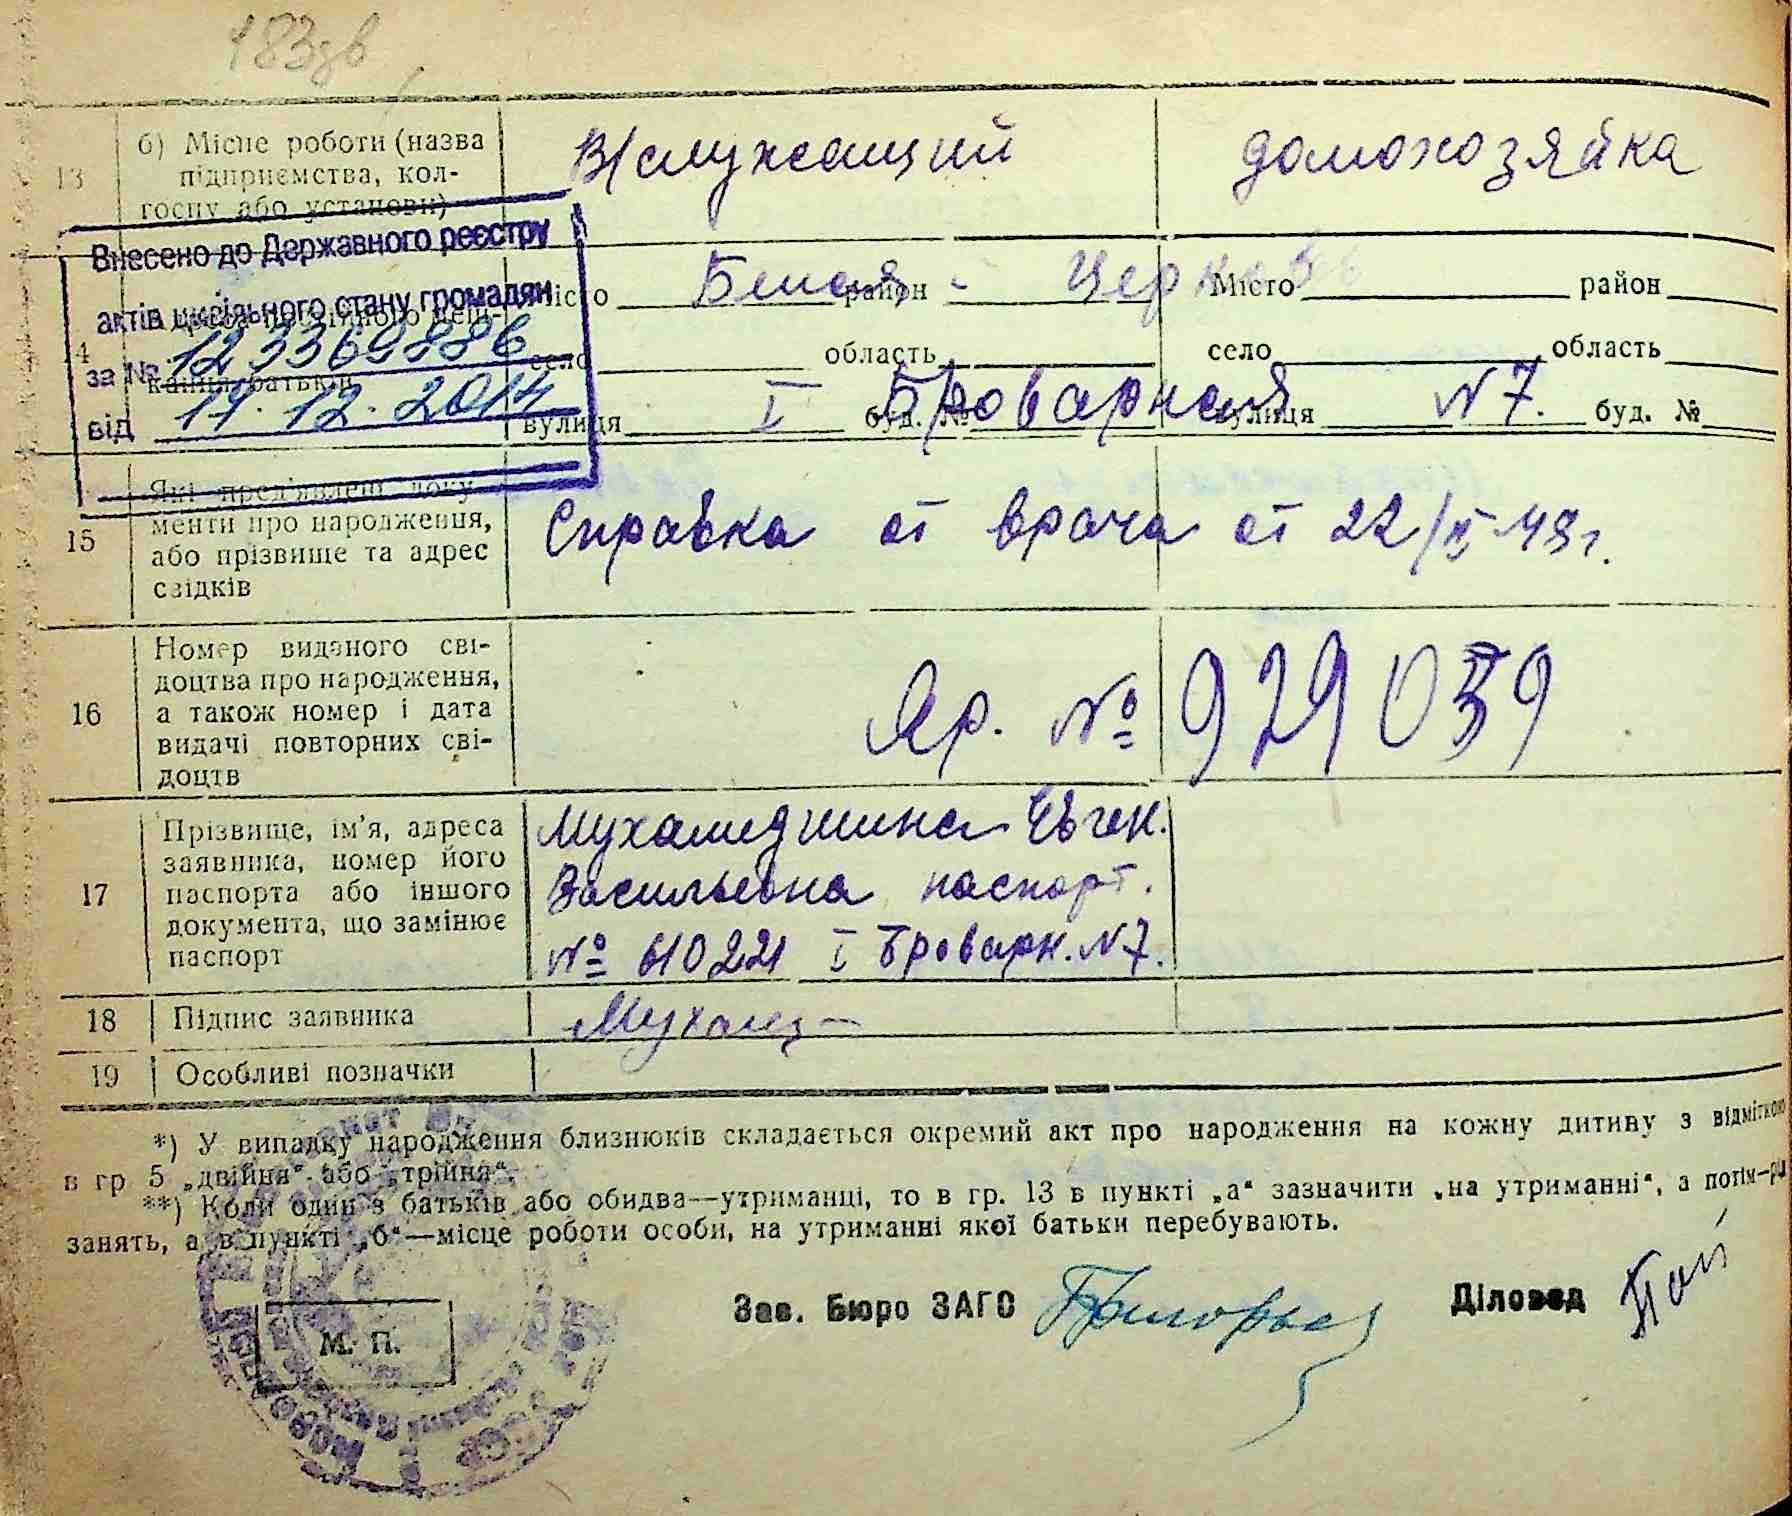 183зв
13
б) Місце роботи (назва
підприємства, кол-
госпу або установи)
В/служащий
домохозяйка
Внесено до Державного реєстру
актів цивільного стану громадян
за № 123369886
від 17.12.2014
14
кання батьків
місто Белая район - Церковь
Місто район
село область
село область
вулиця I буд. № Броварная
вулиця N 7. буд. №
15
Які пред'явлені доку-
менти про народження,
або прізвище та адрес
свідків
Справка от врача от 22/ 48г.
16
Номер виданого сві-
доцтва про народження,
а також номер і дата
видачі повторних сві-
доцтв
Яр. № 929059
17
Прізвище, ім'я, адреса
заявника, номер його
паспорта або іншого
документа, що замінює
паспорт
Мухамедшина Евген.
Васильевна паспорт.
№ 610221 I Броварн. N 7.
18
Підпис заявника
Мухамед
19
Особливі позначки
*) У випадку народження близнюків складається окремий акт про народження на кожну дитину з відміткою
в гр 5 „двійня“ або „трійня“.
**) Коли один з батьків або обидва—утриманці, то в гр. 13 в пункті „а“ зазначити „на утриманні“, а потім—рід
занять, а в пункті „б“—місце роботи особи, на утриманні якої батьки перебувають.
Зав. Бюро ЗАГС
Діловод
М. П.